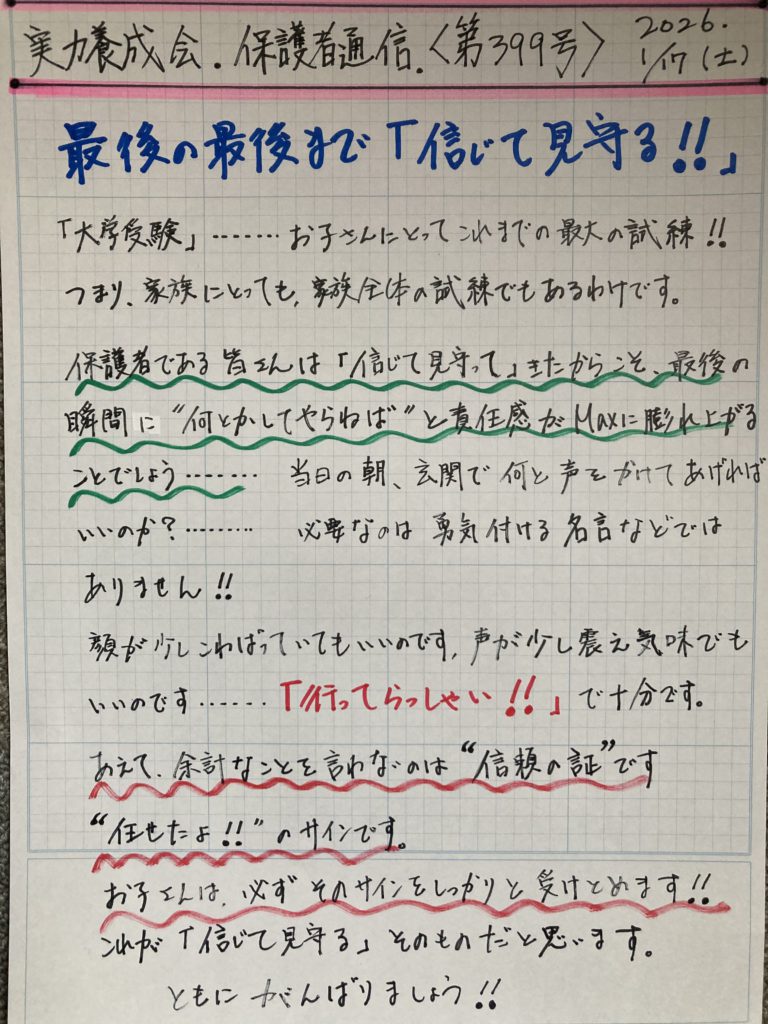 実力養成会.保護者通信.〈第399号〉 2026. 1/17(土)
最後の最後まで「信じて見守る!!」
「大学受験」‥‥‥‥ お子さんにとってこれまでの最大の試練!!
つまり、家族にとっても、家族全体の試練でもあるわけです。
保護者である皆さんは「信じて見守って」きたからこそ、最後の
瞬間に“何とかしてやらねば”と責任感がMaxに膨れ上がる
ことでしょう‥‥‥‥ 当日の朝、玄関で何と声をかけてあげれば
いいのか?‥‥‥‥ 必要なのは勇気付ける名言などでは
ありません!!
顔が少しこわばっていてもいいのです,声が少し震え気味でも
いいのです‥‥‥ 「行ってらっしゃい!!」で十分です。
あえて、余計なことを言わないのは“信頼の証”です
“任せたよ!!”のサインです。
お子さんは、必ずそのサインをしっかりと受けとめます!!
これが「信じて見守る」そのものだと思います。
ともにがんばりましょう!!